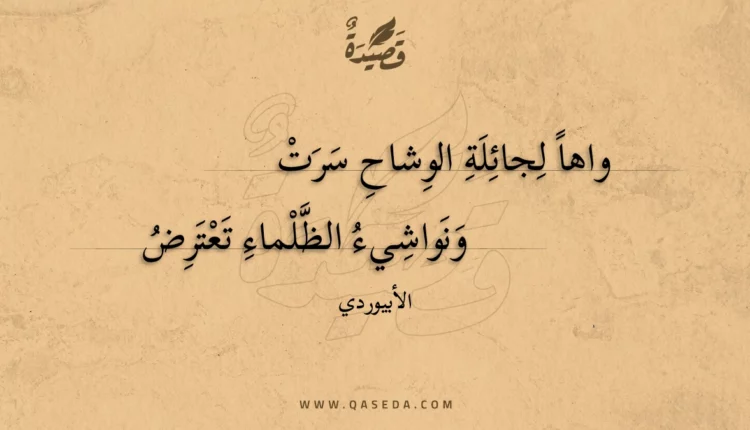 قَصِيْدَةٌ
واهاً لِجائِلَةِ الوِشاحِ سَرَتْ
وَنَواشِيءُ الظَّلْماءِ تَعْتَرِضُ
الأبيوردي
WWW.QASEDA.COM